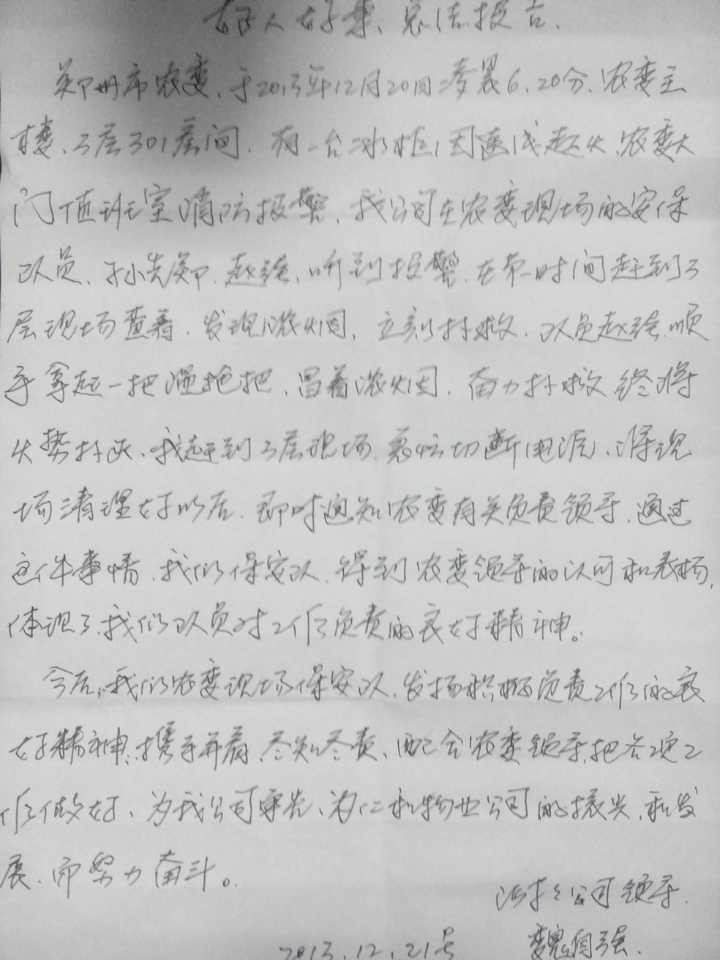 好人好事、总结报告.
郑州市农委,于2013年12月20日凌晨6.20分.农委主
楼、3层301房间.有一台冰柜因连线起火,农委大
门值班室消防报警,我公司在农委现场的安保
队员、孙先郑.赵强,听到报警,在第一时间赶到3
层现场查看.发现浓烟,立刻扑救.队员赵强顺
手拿起一把湿拖把,冒着浓烟,奋力扑救,终将
火势扑灭、我赶到3层现场,切断电源,将现
场清理好以后.即时通知农委有关负责领导.通过
这件事情,我们保安队,得到农委领导的认可和表扬,
体现了我们队员对工作负责的良好精神。
今后,我们农委现场保安队,发扬积极负责工作的良
好精神,携手并肩,尽知尽责、配合农委领导,把各项工
作做好、为我公司争光、为仁和物业公司的振兴,和发
展.而努力奋斗。
公司领导.
2013.12.21号 魏国强.